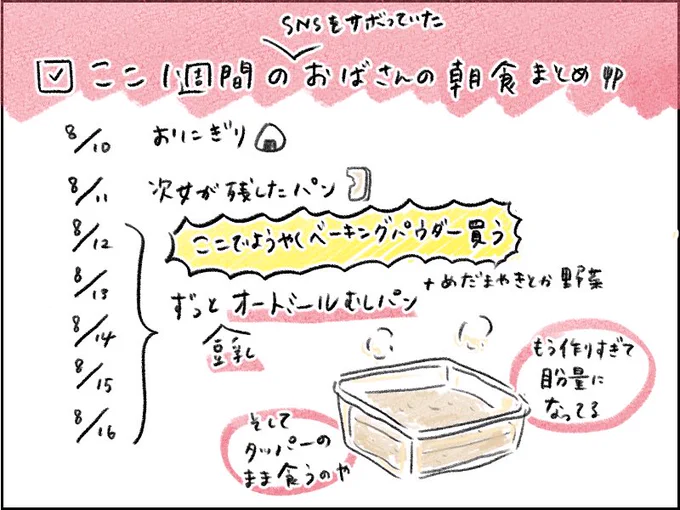 SNSをサボっていた
ここ1週間のおばさんの朝食まとめ
8/10 おりこぎり
8/11 次女が残したパン
8/12
ここでようやくベーキングパウダー買う
8/13
+めだまやきとか野菜
ずっとオートミールむしパン
8/14
豆乳
8/15
8/16
もう作りすぎて
目分量に
なってる
そして
タッパーの
まま食うのや